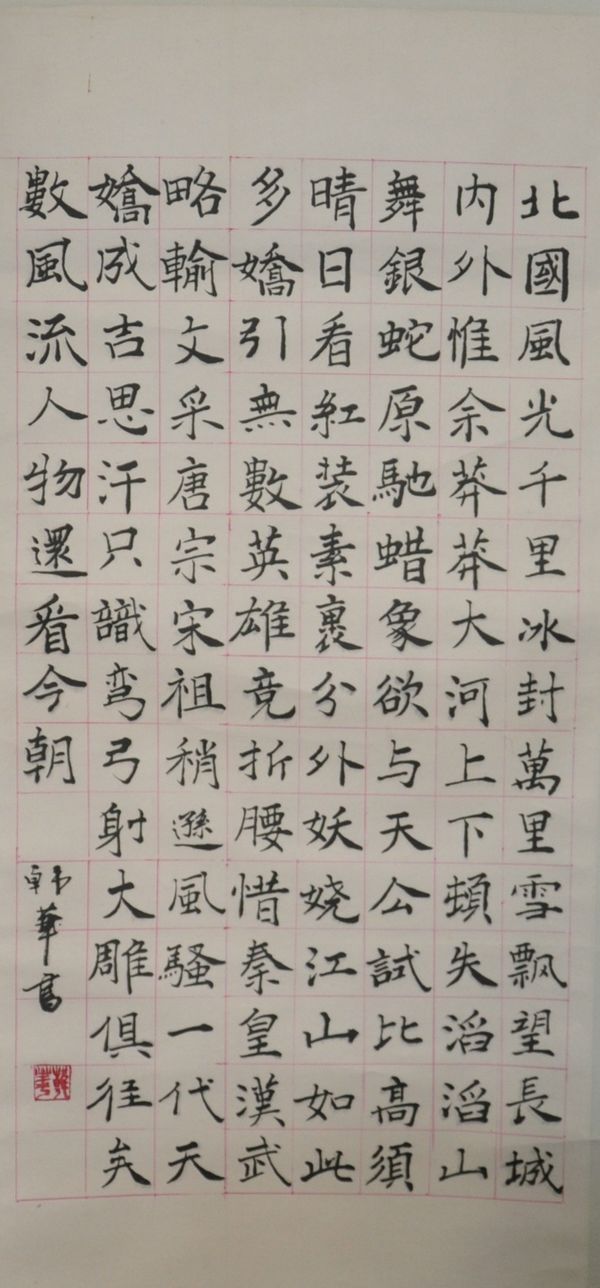 北國風光千里冰封萬里雪飘望長城
内外惟余莽莽大河上下頓失滔滔山
舞銀蛇原馳蜡象欲与天公試比高須
晴日看紅装素裹分外妖娆江山如此
多嬌引無數英雄竞折腰惜秦皇漢武
略輸文采唐宗宋祖稍遜風騷一代天
嬌成吉思汗只識弯弓射大雕俱往矣
數風流人物還看今朝
韩華書